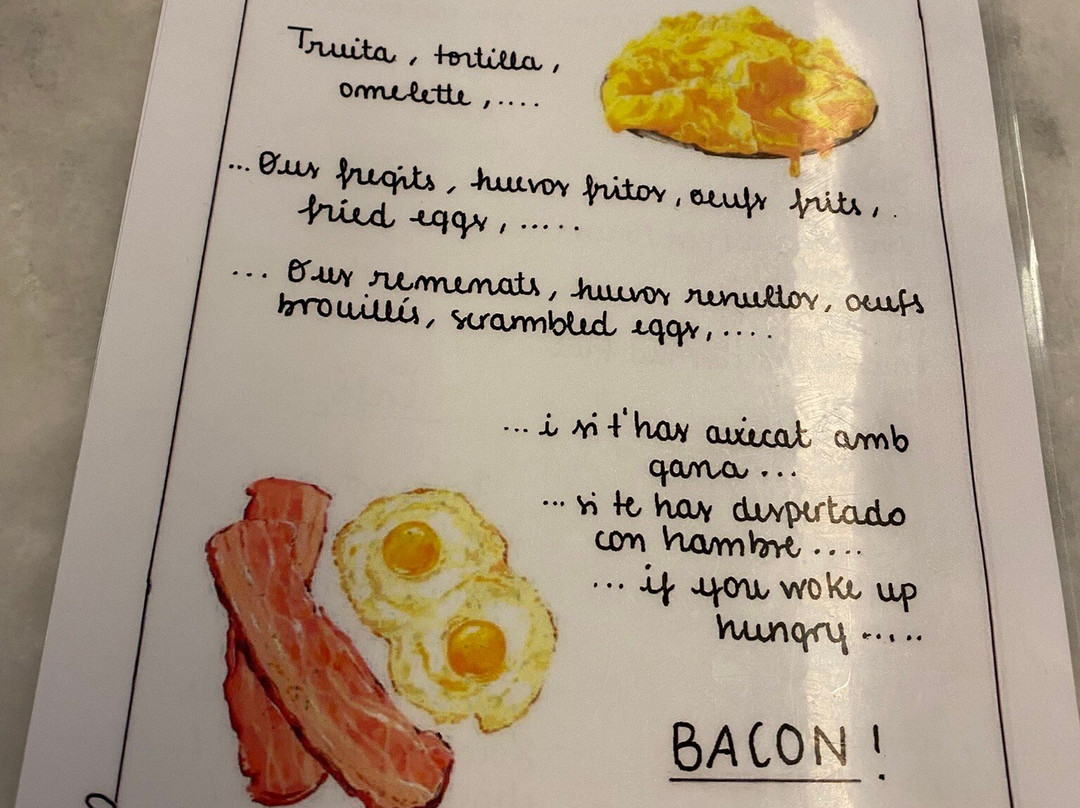 Truita, tortilla,
omelette,....
... Ous fregits, huevos fritos, oeufs frits,.
fried eggs,.....
... Ous remenats, huevos revueltos, oeufs
brouillés, scrambled eggs,....
... i si t'has aixecat amb
gana...
... si te has despertado
con hambre....
... if you woke up
hungry.....
BACON!